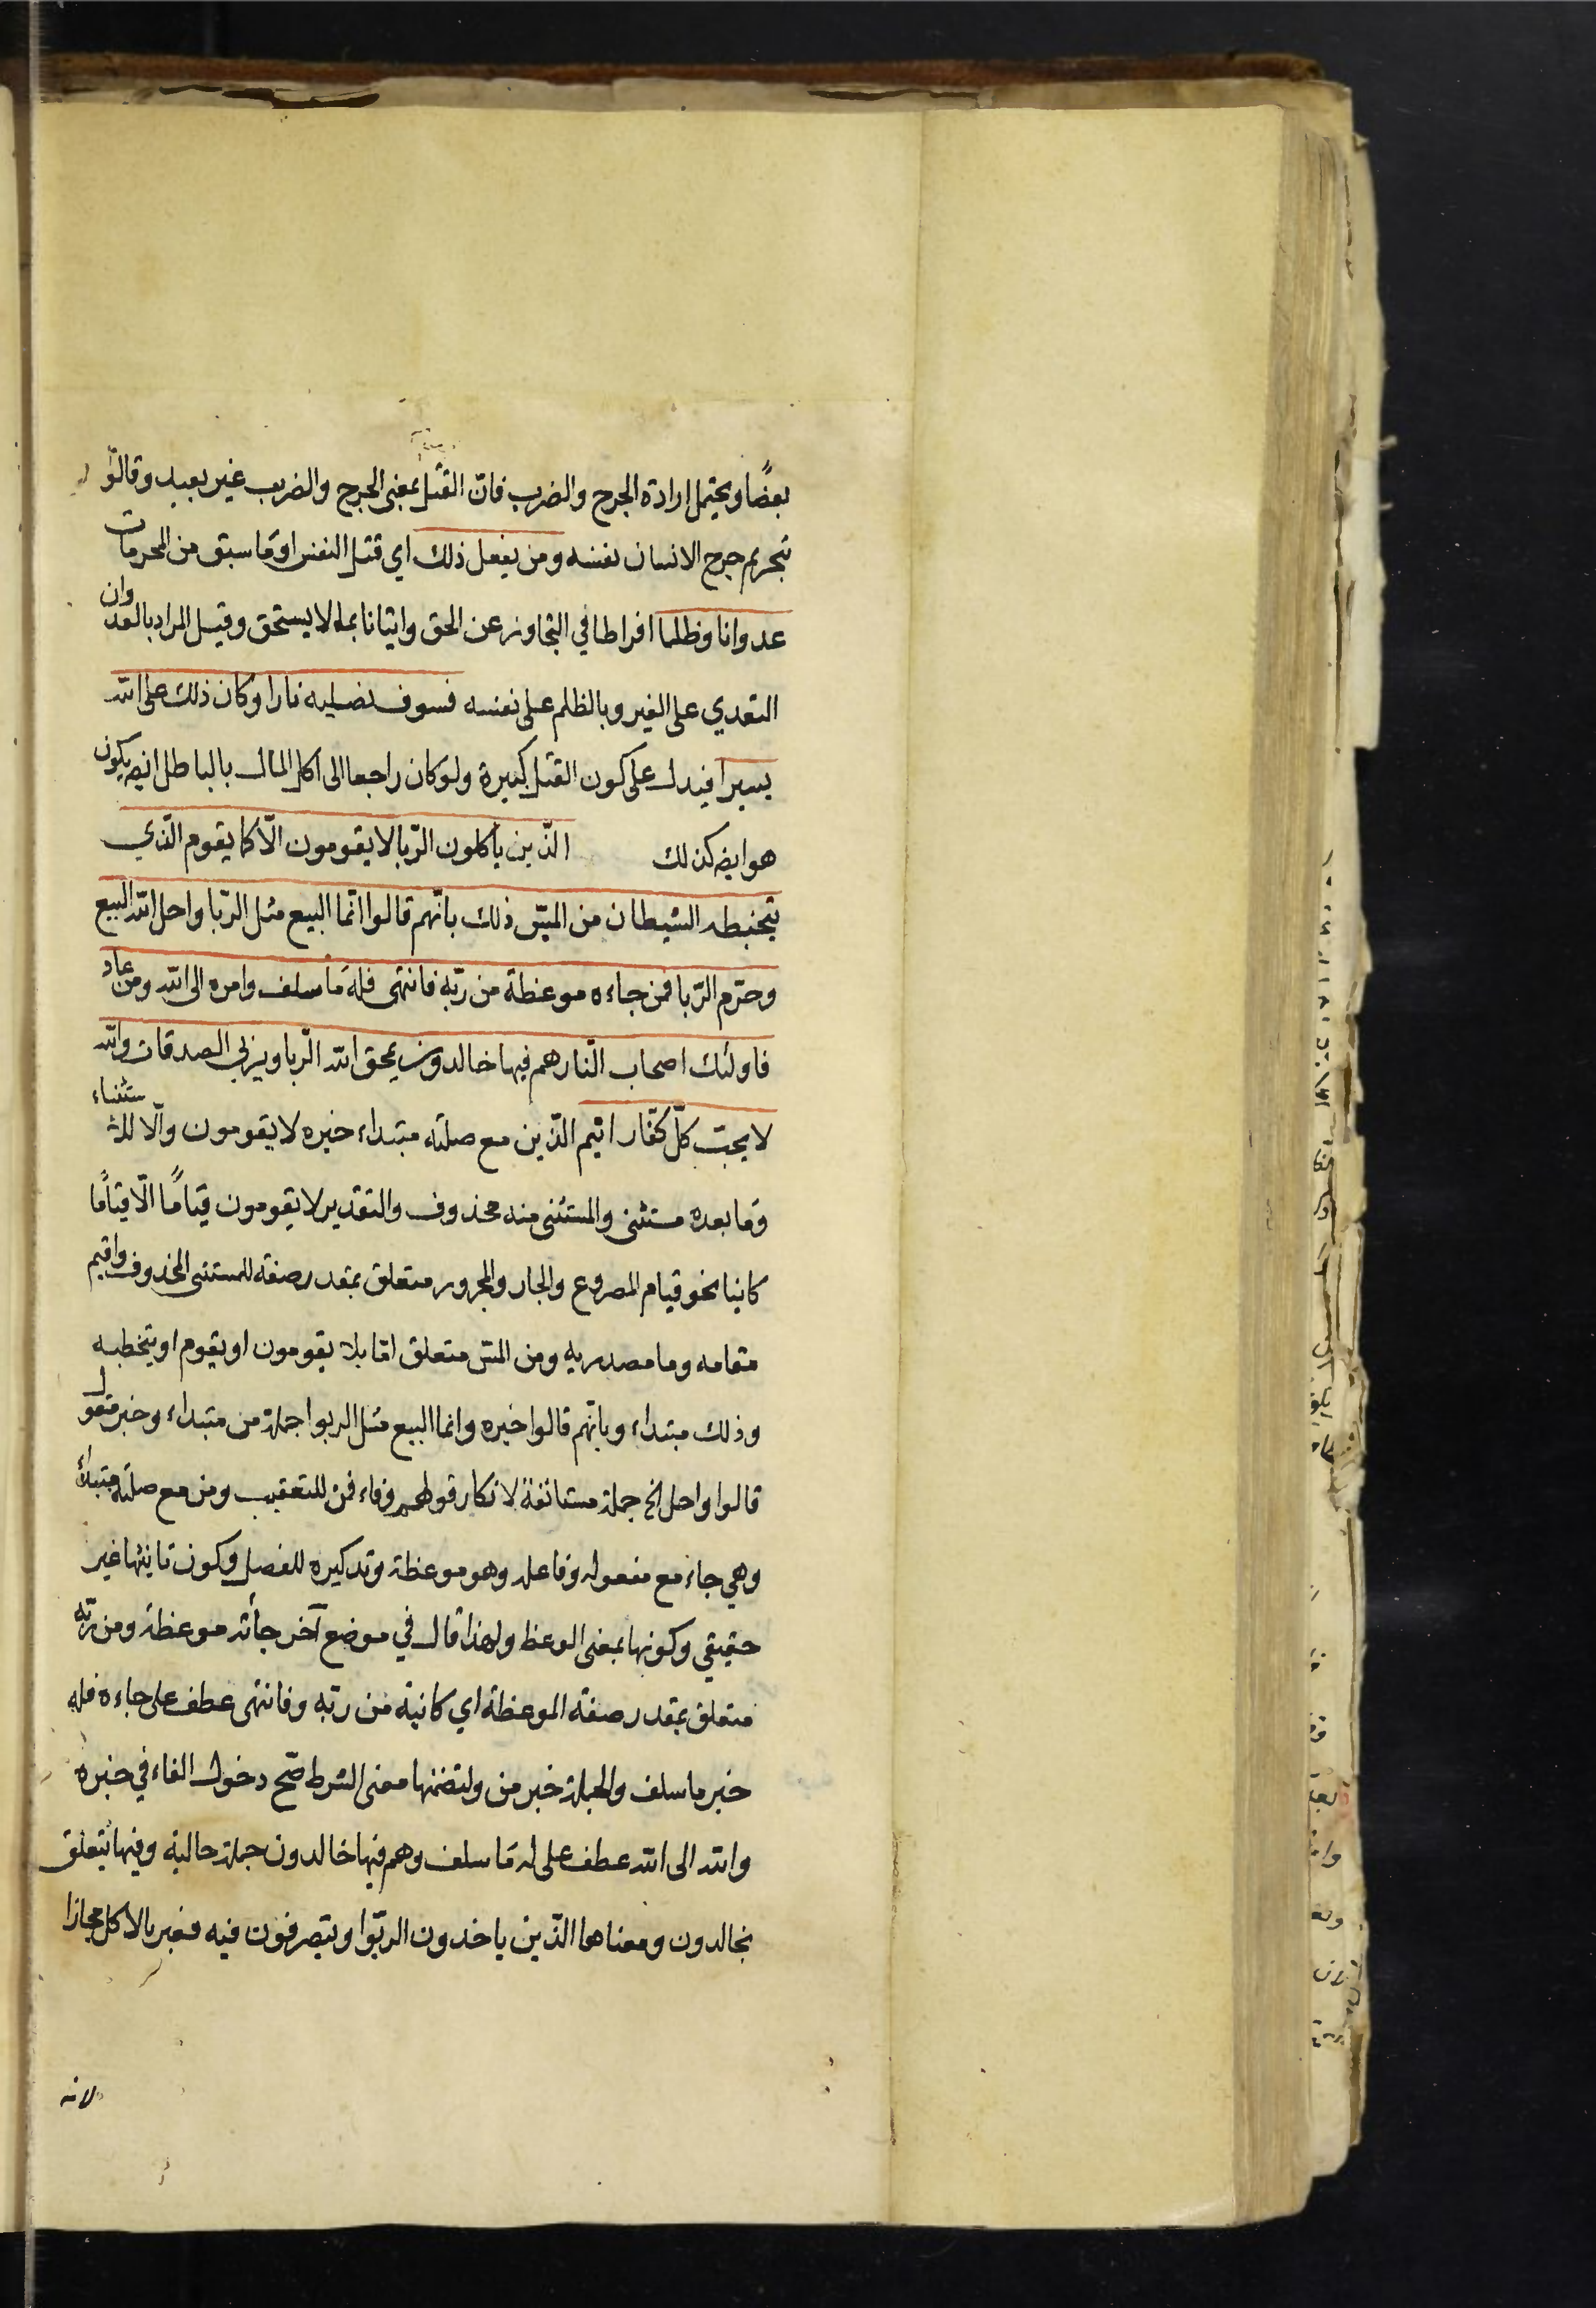 بعضًا ويحتمل ارادة الجرح والضرب فانّ القتل بمعنى الجرح والضرب غير بعيد وقالوا
بتحريم جرح الانسان نفسه ومن يفعل ذلك اي قتل النفس او ما سبق من المحرمات
عدوانا وظلما افراطا في التجاوز عن الحق واتيانا بما لا يستحق وقيل المراد بالعدوان
التعدي على الغير وبالظلم على نفسه فسوف نصليه نارا وكان ذلك على الله
يسيرا فيدل على كون القتل كبيرة ولو كان راجعا الى اكل المال بالباطل ايضا يكون
هو ايضا كذلك الّذين يأكلون الرّبا لا يقومون الّا كما يقوم الّذي
يتخبطه الشيطان من المسّ ذلك بانّهم قالوا انّما البيع مثل الرّبا واحل الله البيع
وحرّم الرّبا فمن جاءه موعظة من ربّه فانتهى فله ما سلف وامره الى الله ومن عاد
فاولئك اصحاب النّار هم فيها خالدون يمحق الله الرّبا ويربي الصدقات والله
لا يحبّ كلّ كفّار اثيم الذّين مع صلته مبتداء خبره لا يقومون والّا للاستثناء
وما بعده مستثنى والمستثنى منه محذوف والتقدير لا يقومون قيامًا الّا قيامًا
كاينا نحو قيام المصروع والجار والمجرور متعلق بمقدر صفة للمستثنى المحذوف واقيم
مقامه وما مصدريه ومن المسّ متعلق امّا بلا يقومون او يقوم او يتخطبه
وذلك مبتداء وبانّهم قالوا خبره وانما البيع مثل الربوا جملة من مبتداء وخبر مقول
قالوا واحل الخ جملة مستانفة لانكار قولهم وفاء فمن للتعقيب ومن مع صلته مبتدأ
وهي جاء مع مفعوله وفاعله وهو موعظة وتذكيره للفصل وكون تانيثها غير
حقيقي وكونها بمعنى الوعظ ولهذا قال في موضع آخر جأته موعظة ومن ربّه
متعلق بمقدر صفة الموعظة اي كانية من ربّه وفانتهى عطف على جاءه فله
خبر ما سلف والجملة خبر من ولتضمنها معنى الشرط صّح دخول الفاء في خبره
والله الى الله عطف على له ما سلف وهم فيها خالدون جملة حالية وفيها يتعلق
بخالدون ومعناها الّذين ياخذون الربّوا ويتصرفون فيه فعبر بالاكل مجازا
لانه